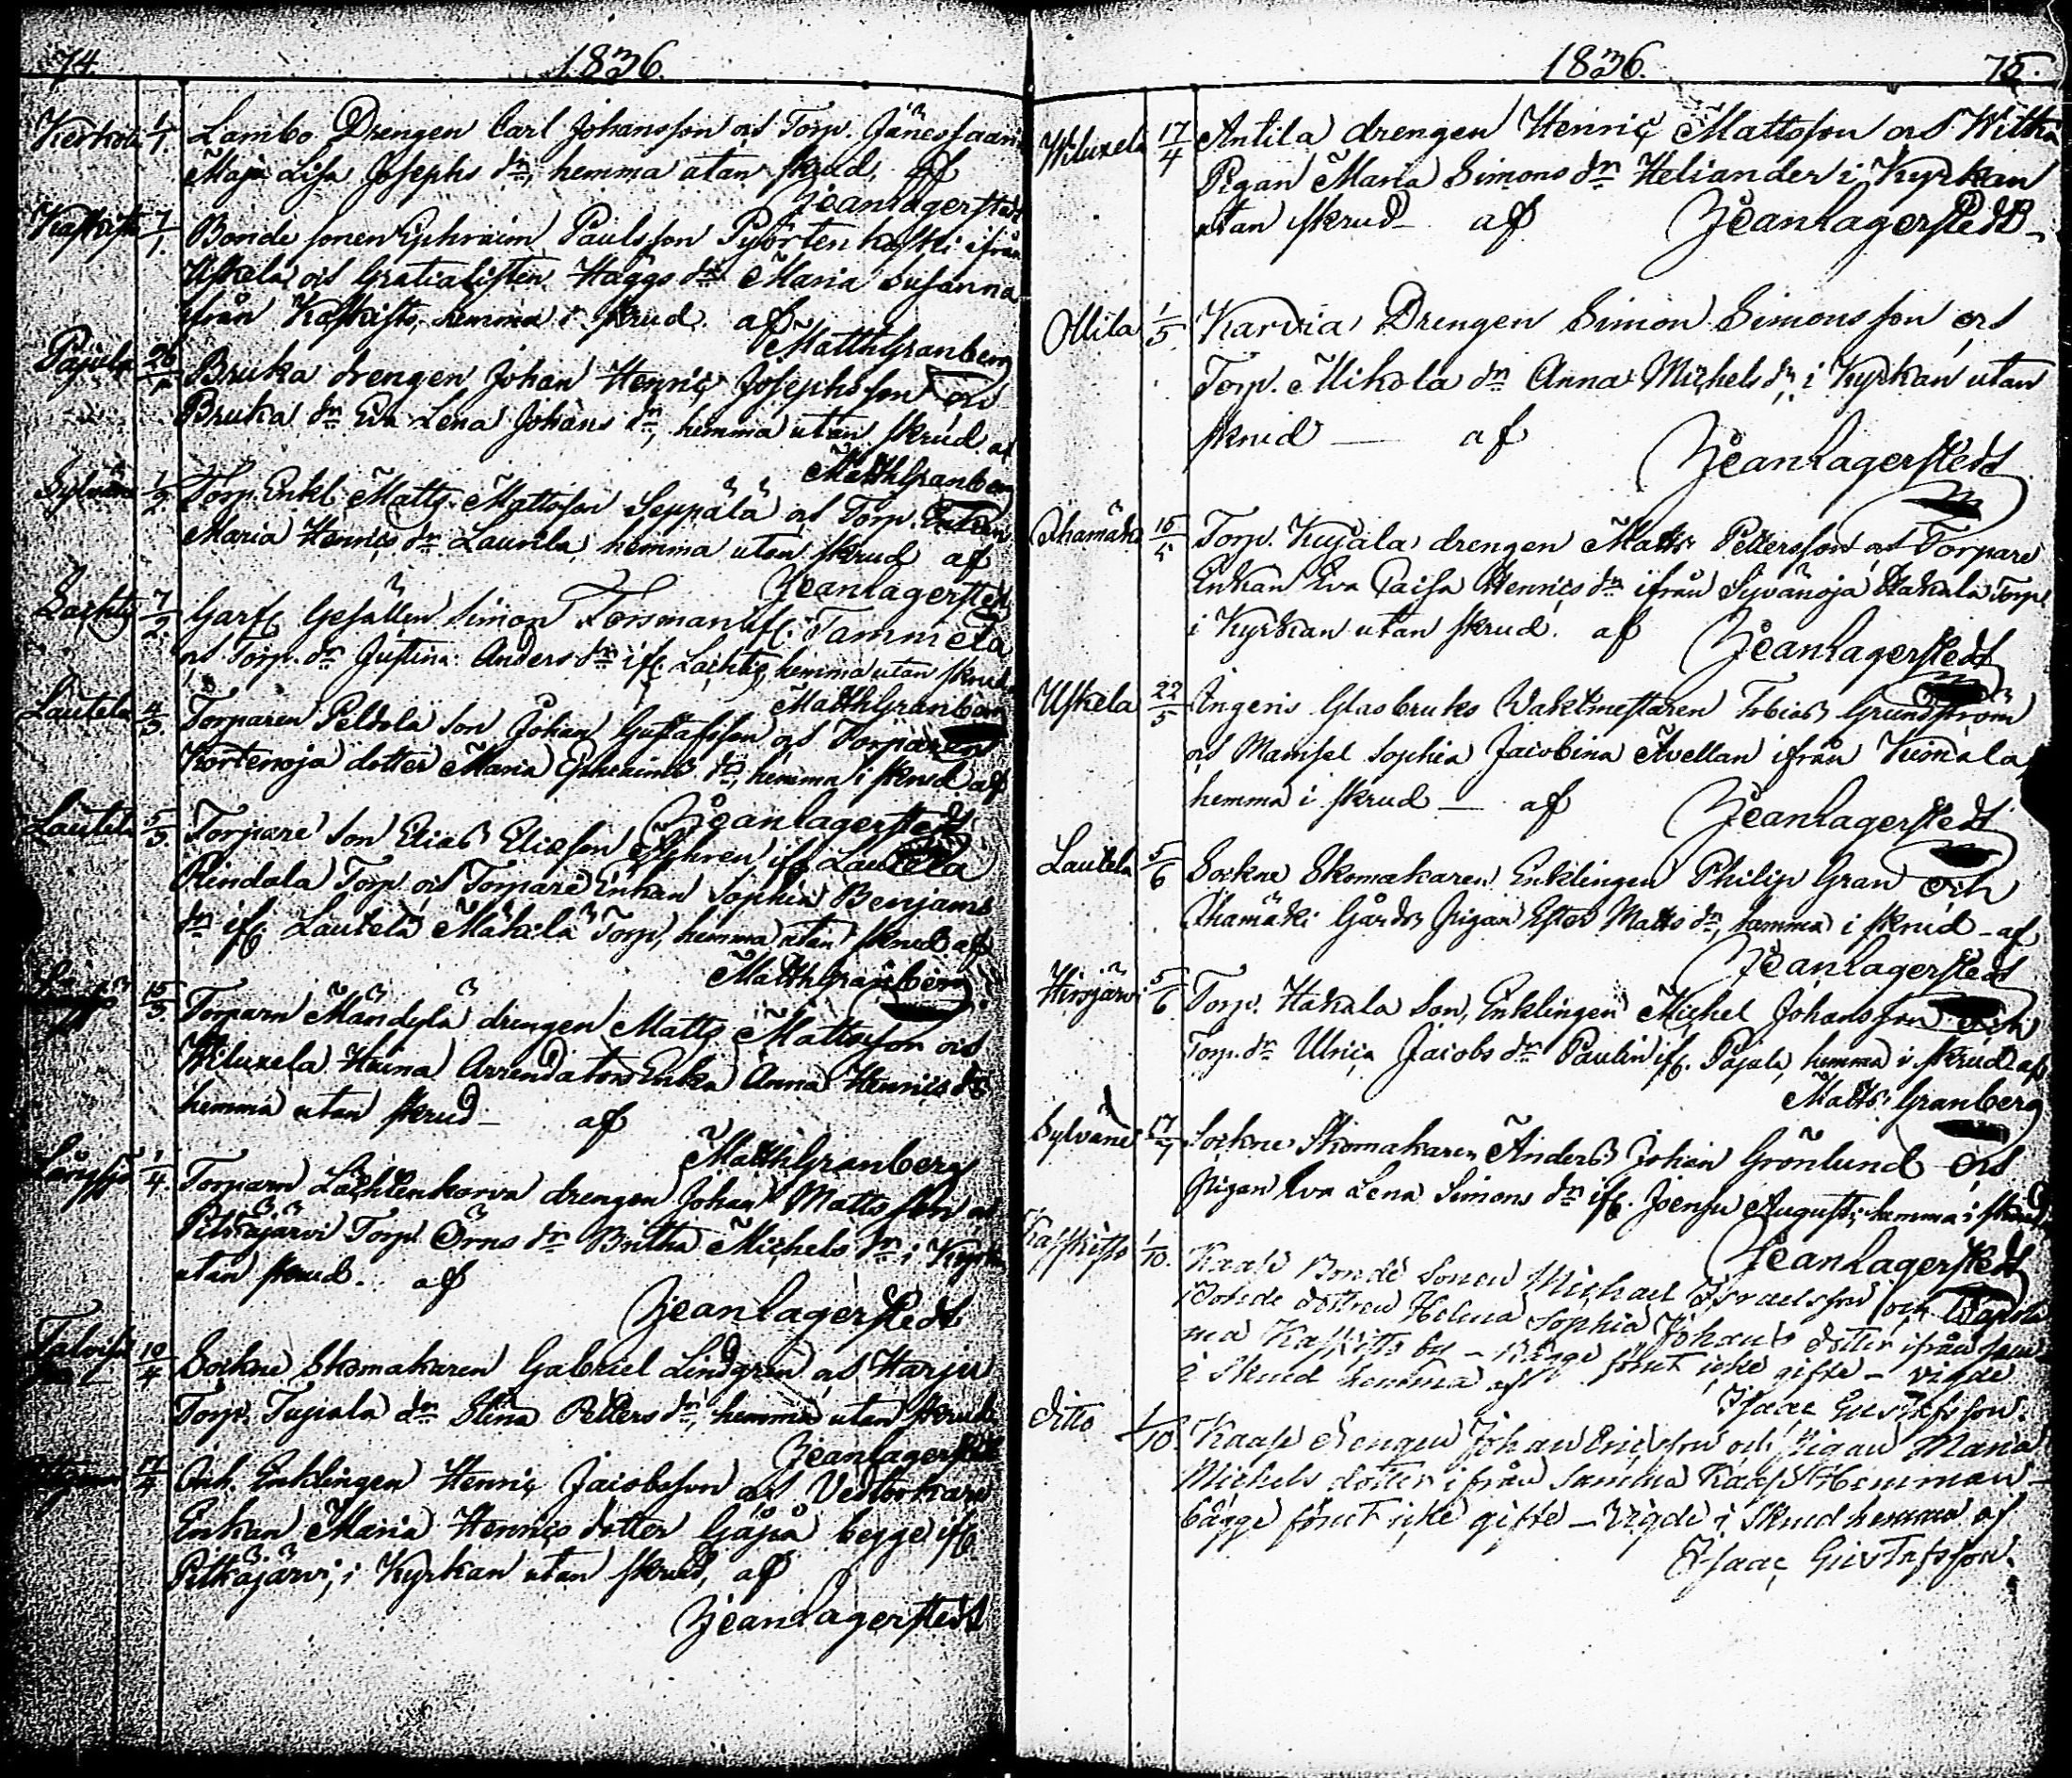 74. 1836.
Kerkola 1/1 Lambo Drengen Carl Johansson och Torp. Jänessaari
Maja Lisa Josephs dr, hemma utan skrud, af
Zeanlagerstedt
Kaskisto 7/1. Bonde sonen Ephraim Paulsson Pyörtenkoski ifrån
Uskela och Gratialisten Häggs dr Maria Susanna
ifrån Kaskisto, hemma i skrud. af
MatthGranberg
Pajula 26/1 Bruka drengen Johan Henric Josephsson och
Bruka dr Eva Lena Johans dr, hemma utan skrud af
MatthGranberg
Sylvänä 1/2. Torp. Enkl. Matts Mattsson Seppälä och Torp. Enkan
Maria Henrics dr Laurila, hemma utan skrud af
Zeanlagerstedt
Lachtis 7/2. Garf. Gesällen Simon Forsman if. Tammela
och Torp. dr Justina Anders dr if. Lachtis hemma utan skrud
MatthGranberg
Lautela 4/3. Torparen Peldola son Johan Gustafsson och Torparens
Kortenoja dotter Maria Ephraims dr, hemma i skrud af
Zeanlagerstedt
Lautela 5/3. Torpare son Elias Eliasson if. Lautela
Rindala Torp. och Torpare Enkan Sophia Benjams
dr if. Lautela Mäkilä Torp, hemma utan skrud af
MatthGranberg
15/3. Torparn Mändylä drengen Matts Mattsson och
Wiluxela Heina Arrendators Enka Anna Henrics dr
hemma utan skrud – af
MatthGranberg
Långsjö 1/4. Torparn Lachtenkorva drengen Johan Mattsson och
Pitkäjärvi Torp. Örns dr Britha Michels dr i Kyrkan
utan skrud. af
Zeanlagerstedt
10/4 Sockne Skomakaren Gabriel Lindgren och Harju
Torp. Tupala dr Stina Petters dr, hemma utan skrud
Zeanlagerstedt
17/4 Inh. Enklingen Henric Jacobsson och Vedbärare
Enkan Maria Henrics dotter begge if.
Pitkäjärvi, i Kyrkan utan skrud, af
Zeanlagerstedt
1836. 75.
Wiluxela 17/4 Antila drengen Henric Mattsson och
Pigan Maria Simons dr Heliander i Kyrkan
utan skrud – af Zeanlagerstedt
Ollila 1/5 Karvia Drengen Simon Simonsson och
Torp. Mikola dr Anna Michels dr, i Kyrkan utan
skrud — af
Zeanlagerstedt
Ihamäki 15/5 Torp. Kujala drengen Matts Pettersson och Torpare
Enkan Eva Caisa Henrics dr ifrån Syvänoja Hakala Torp
i Kyrkan utan skrud. af Zeanlagerstedt
Uskela 22/5 Ingeris Glasbruks Vaktmestaren Tobias Grundström
och Mamsel Sophia Jacobina Avellan ifrån Kumala,
hemma i skrud — af Zeanlagerstedt
Lautela 5/6 Sockne Skomakaren Enklingen Philip Gran och
Ihamäki Gårds Pigan Ester Matts dr, hemma i skrud – af
Zeanlagerstedt
Hirsjärvi 5/6. Torp. Hakala Son, Enklingen Michel Johansson och
Torp. dr Ulrica Jacobs dr Paulin if. Pajula, hemma i skrud af
Matts Granberg
Sylvänä 17/7 Sockne Skomakaren Anders Johan Grönlund och
Pigan Eva Lena Simons dr if. Joensu Augusti, hemma i skrud
Zeanlagerstedt
Kaskisto 1/10. Kaase Bonde Sonen Michael Israelsson och
Bonde dottren Helena Sophia Johans dotter ifrån sam-
ma Kaskisto by – bägge förut icke gifte – vigde
i skrud hemma af
Isaac Gustafsson.
ditto 1/10. Kaase drengen Johan Ericsson och Pigan Maria
Michels dotter ifrån samma Kaase Hemman –
bägge förut icke gifte – vigde i skrud hemma af
Isaac Gustafsson.